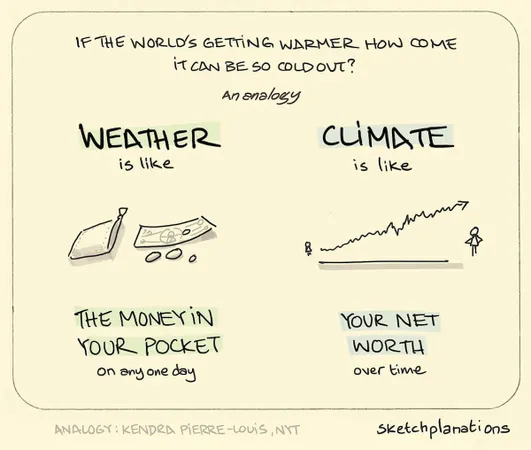 IF THE WORLD'S GETTING WARMER HOW COME
IT CAN BE SO COLD OUT?
An analogy
WEATHER
is like
CLIMATE
is like
THE MONEY IN
YOUR POCKET
on any one day
YOUR NET
WORTH
over time
ANALOGY: KENDRA PIERRE-LOUIS, NYT
sketchplanations